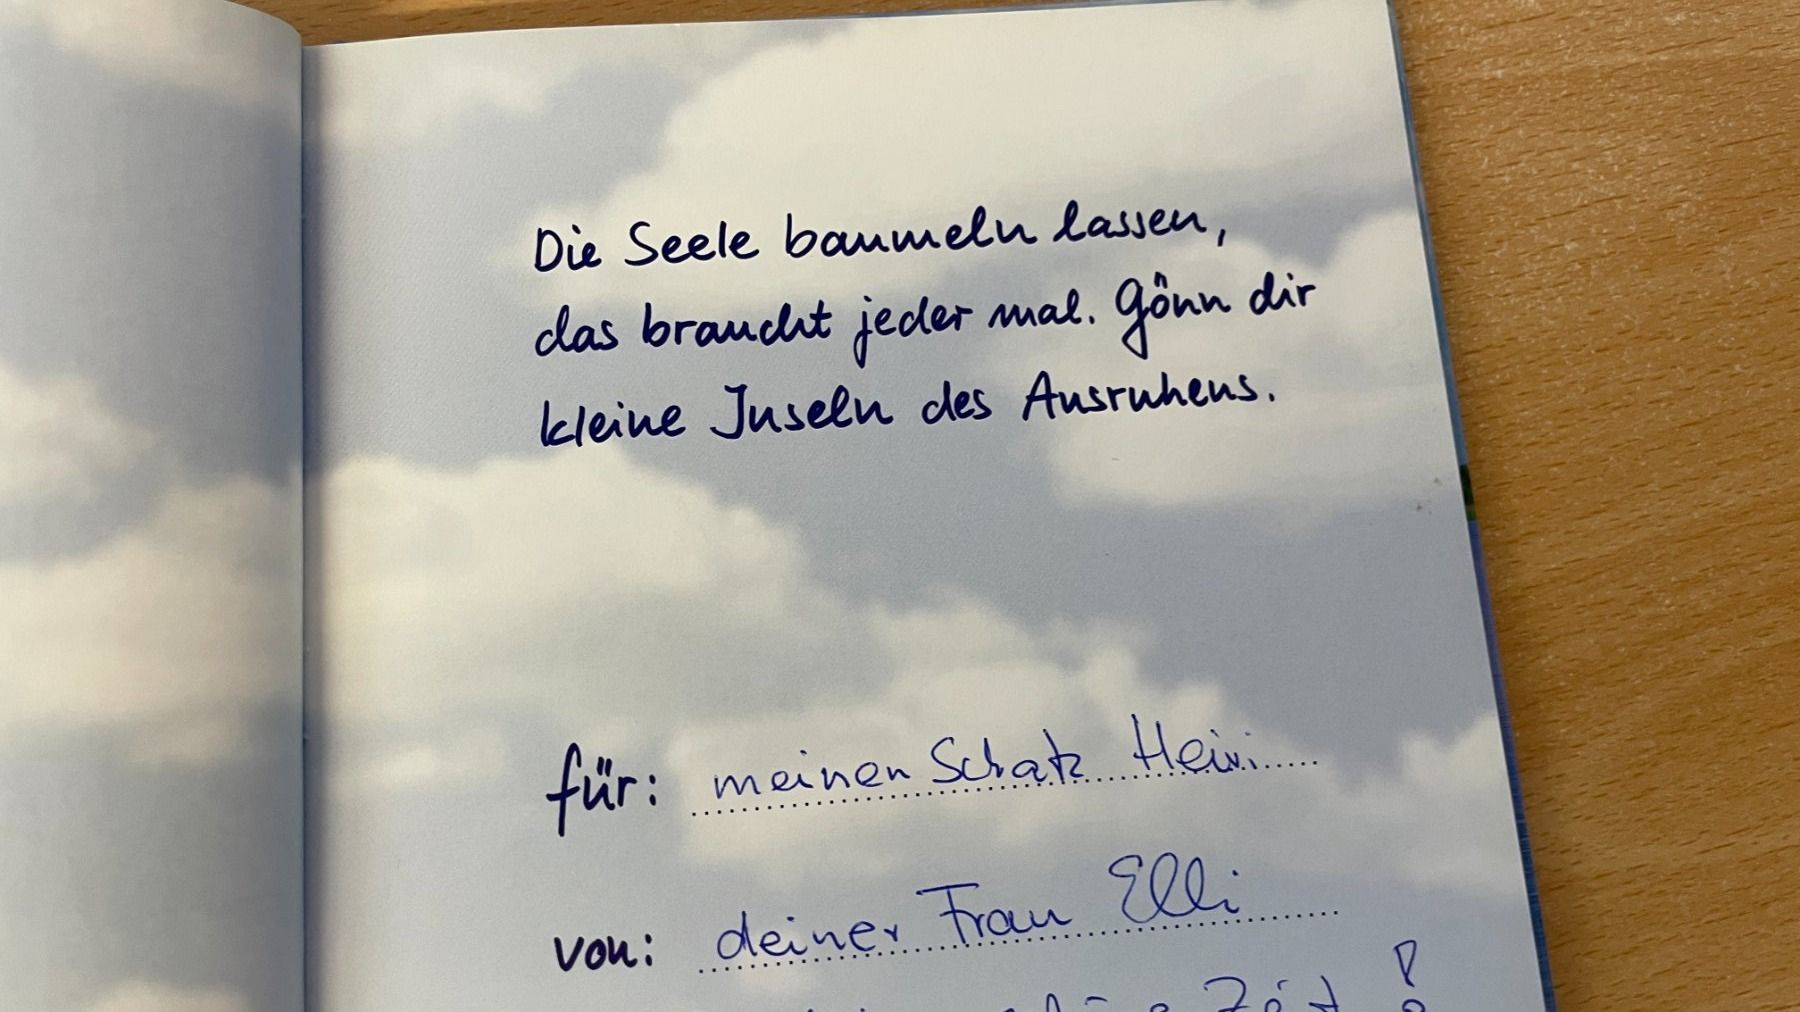 Die Seele baumeln lassen,
das braucht jeder mal. Gönn dir
kleine Inseln des Ausruhens.
für: meinen Schatz Heini
von: deiner Frau Elli
Zeit!